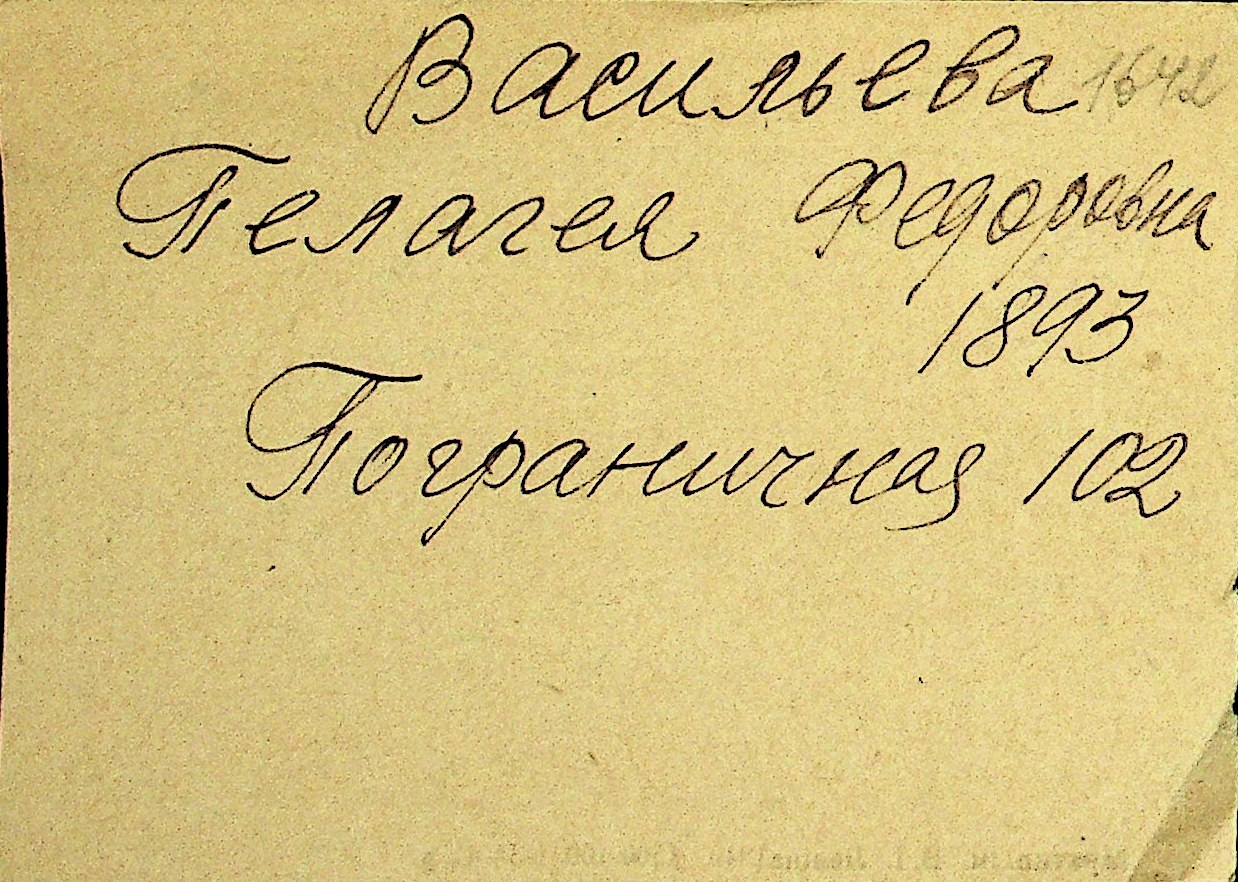 Васильева 1642
Пелагея Федоровна
1893
Пограничная 102